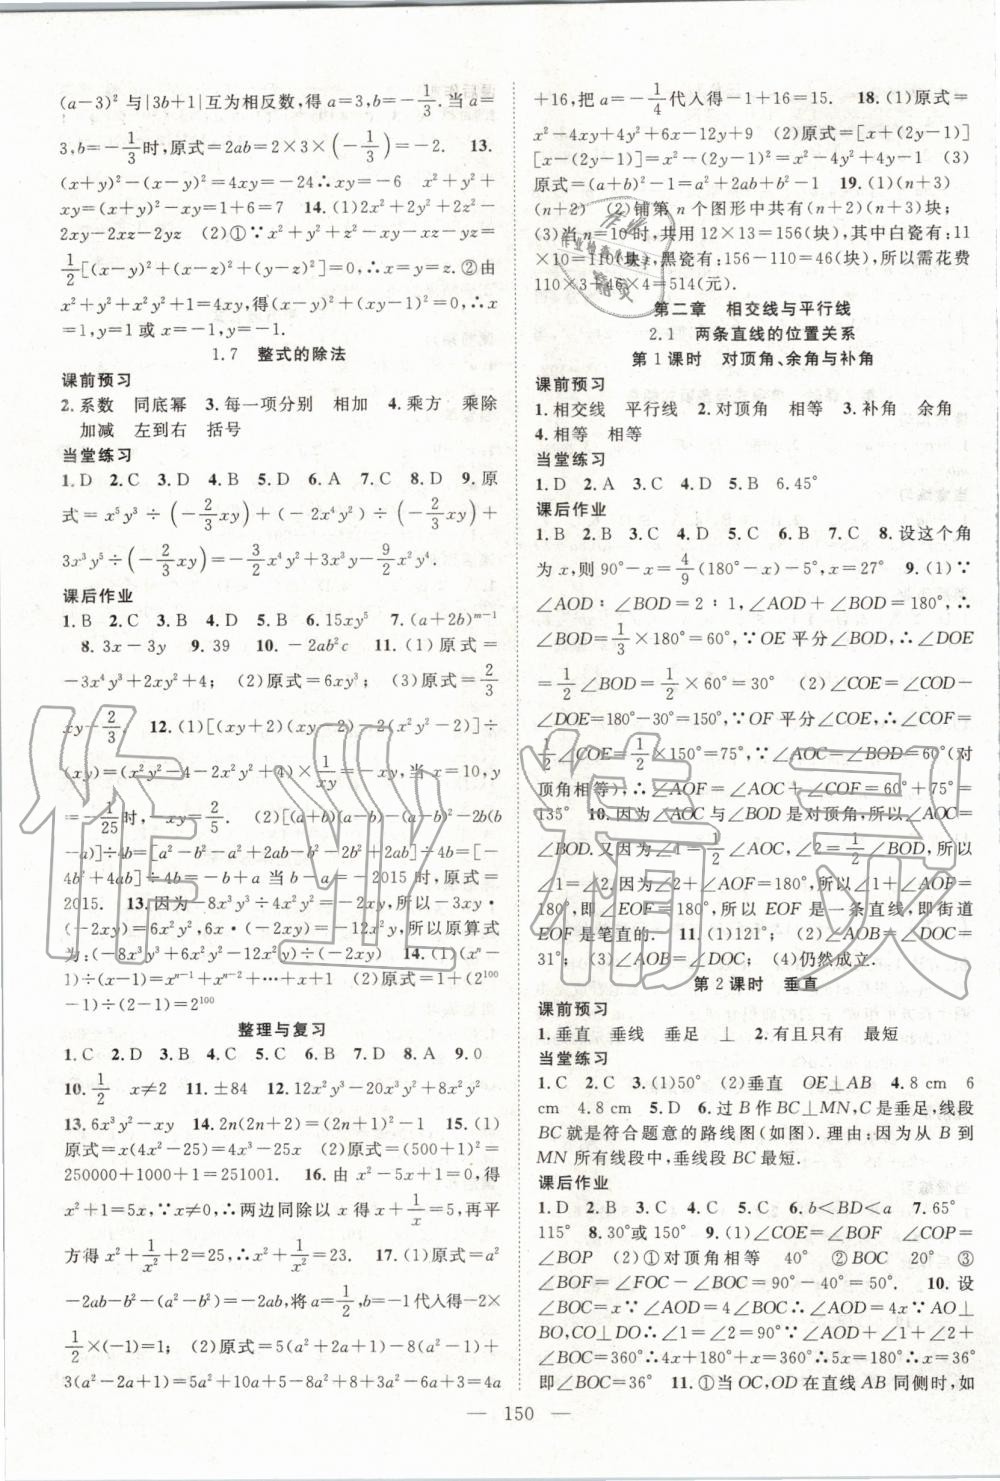 (a-3)² 与|3b+1|互为相反数,得 a=3,b=-1/3. 当 a=
3,b=-1/3时,原式=2ab=2×3×(-1/3)=-2. 13.
(x+y)²-(x-y)²=4xy=-24∴xy=-6 x²+y²+
xy=(x-y)²-xy=1+6=7 14. (1)2x²+2y²+2z²-
2xy-2xz-2yz (2)①∵x²+y²+z²-xy-xz-yz=
1/2[(x-y)²+(x-z)²+(y-z)²]=0,∴x=y=z.②由
x²+y²+x²y²+1=4xy,得(x-y)²+(xy-1)²=0,∴x=
1,y=1或 x=-1,y=-1.
1.7 整式的除法
课前预习
2.系数 同底幂 3.每一项分别 相加 4.乘方 乘除
加减 左到右 括号
当堂练习
1.D 2.C 3.D 4.B 5.D 6.A 7.C 8.D 9.原
式=x⁵y³÷(-2/3xy)+(-2x⁴y²)÷(-2/3xy)+
3x³y⁵÷(-2/3xy)=-3/2x⁴y²+3x³y-9/2x²y⁴.
课后作业
1.B 2.C 3.B 4.D 5.D 6.15xy⁵ 7.(a+2b)ᵐ⁻¹
8.3x-3y 9.39 10.-2ab²c 11.(1)原式=
-3x⁴y³+2xy²+4;(2)原式=6xy³;(3)原式=2/3
xy-2/3. 12.(1)[(xy+2)(xy-2)-2(x²y²-2)]÷
(xy)=(x²y²-4-2x²y²+4)×1/xy=-xy,当 x=10,y
=-1/25时,-xy=2/5. (2)[(a+b)(a-b)-(a-b)²-2b(b
-a)]÷4b=[a²-b²-a²+2ab-b²-2b²+2ab]÷4b=[-
4b²+4ab]÷4b=-b+a 当 b=a-2015 时,原式=
2015. 13.因为-8x³y³÷4x²y²=-2xy,所以-3xy·
(-2xy)=6x²y²,6xy·(-2xy)=-12x²y²,所以原算式
为:(-8x³y³+6x²y²-12x²y²)÷(-2xy) 14.(1)(xⁿ-
1)÷(x-1)=xⁿ⁻¹+xⁿ⁻²+…+x+1 (2)原式=1+(2¹⁰⁰
-1)÷(2-1)=2¹⁰⁰
整理与复习
1.C 2.D 3.B 4.C 5.C 6.B 7.D 8.A 9.0
10.1/2 x≠2 11.±84 12.12x³y³-20x³y²+8x²y²
13.6x³y²-xy 14.2n(2n+2)=(2n+1)²-1 15.(1)
原式=x(4x²-25)=4x³-25x (2)原式=(500+1)²=
250000+1000+1=251001. 16.由 x²-5x+1=0,得
x²+1=5x,∵x≠0,∴两边同除以 x,得 x+1/x=5,再平
方得 x²+1/x²+2=5²,∴x²+1/x²=23. 17.(1)原式=a²
-2ab-b²-(a²-b²)=-2ab,将 a=1/2,b=-1代入得-2×
1/2×(-1)=1. (2)原式=2a²-8a+5a-20-(6a²-6)+
3(a²-2a+1)=5a²+2a²-8a+5a-20-6a²+6+3a²-6a
+16,把 a=-1/4代入得-1+16=15. 18.(1)原式=
x²-4xy+4y²+6x-12y+9 (2)原式=[x+(2y-1)]
[x-(2y-1)]=x²-(2y-1)²=x²-4y²+4y-1 (3)
原式=(a+b)²-1=a²+2ab+b²-1 19.(1)(n+3)
(n+2) (2)铺第 n 个图形中共有(n+2)(n+3)块;
(3)当 n=10时,共用 12×13=156(块),其中白瓷有:11
×10=110(块),黑瓷有:156-110=46(块),所以需花费
110×3+46×4=514(元).
第二章 相交线与平行线
2.1 两条直线的位置关系
第1课时 对顶角、余角与补角
课前预习
1.相交线 平行线 2.对顶角 相等 3.补角 余角
4.相等 相等
当堂练习
1.D 2.A 3.C 4.D 5.B 6.45°
课后作业
1.B 2.B 3.C 4.D 5.C 6.B 7.C 8.设这个角
为 x,则 90°-x=4/9(180°-x)-5°,x=27° 9.(1)∵
∠AOD∶∠BOD=2∶1,∠AOD+∠BOD=180°,∴
∠BOD=1/3×180°=60°,∵OE 平分∠BOD,∴∠DOE
=1/2∠BOD=1/2×60°=30° (2)∠COE=∠COD-
∠DOE=180°-30°=150°,∵OF 平分∠COE,∴∠COF=
1/2∠COE=1/2×150°=75°,∵∠AOC=∠BOD=60°(对
顶角相等),∴∠AOF=∠AOC+∠COF=60°+75°=
135° 10.因为∠AOC 与∠BOD 是对顶角,所以∠AOC=
∠BOD.又因为∠1=1/2∠AOC,∠2=1/2∠BOD,所以∠1
=∠2.因为∠2+∠AOF=180°,所以∠1+∠AOF=
180°,即∠EOF=180°,所以 EOF 是一条直线,即街道
EOF 是笔直的. 11.(1)121°;(2)∠AOB=∠DOC=
31°;(3)∠AOB=∠DOC;(4)仍然成立.
第2课时 垂直
课前预习
1.垂直 垂线 垂足 ⊥ 2.有且只有 最短
当堂练习
1.C 2.C 3.(1)50° (2)垂直 OE⊥AB 4.8 cm 6
cm 4.8 cm 5.D 6.过 B 作 BC⊥MN,C 是垂足,线段
BC 就是符合题意的路线图(如图).理由:因为从 B 到
MN 所有线段中,垂线段 BC 最短.
课后作业
1.D 2.B 3.C 4.D 5.C 6.b<BD<a 7.65°
115° 8.30°或 150° 9.(1)∠COE=∠BOF,∠COP=
∠BOP (2)①对顶角相等 40° ②BOC 20° ③
∠BOF=∠FOC-∠BOC=90°-40°=50°. 10.设
∠BOC=x∵∠AOD=4∠BOC∴∠AOD=4x∵AO⊥
BO,CO⊥DO∴∠AOB=∠COD=90°∵∠AOD+∠1+∠2+
∠BOC=360°∴4x+180°+x=360°∴5x=180°∴x=36°
即∠BOC=36° 11.①当 OC,OD 在直线 AB 同侧时,如
— 150 —
作业精灵